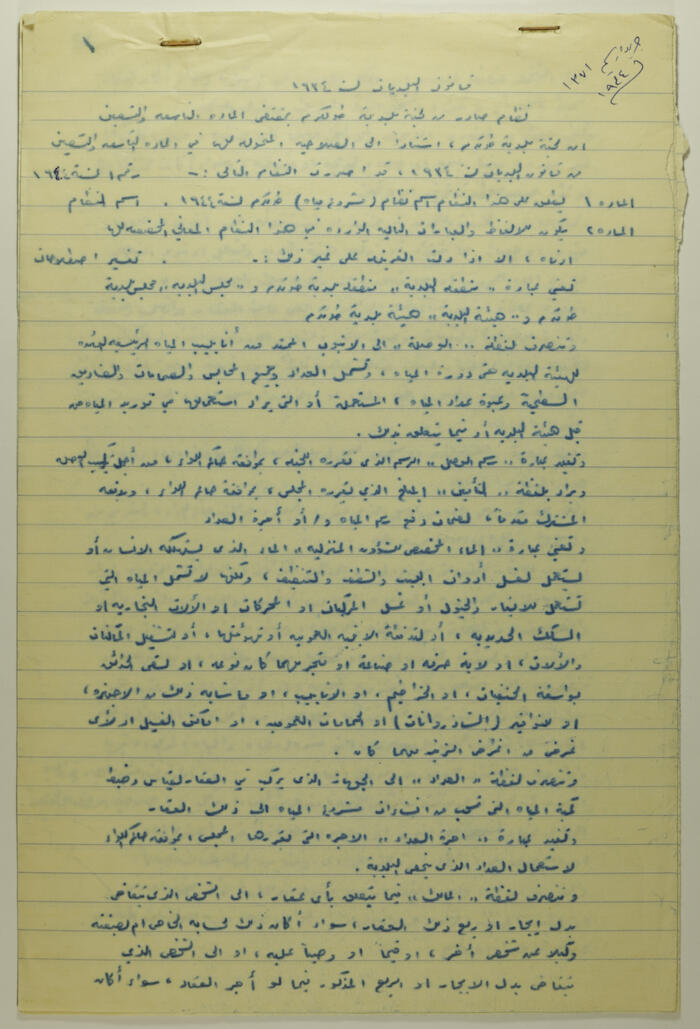 ١
جريدة رسمية
١٣٧١
١٩٤٤
قانون البلديات لسنة ١٩٣٤
نظام صادر من لجنة بلدية طولكرم بمقتضى المادة التاسعة والتسعين
ان لجنة بلدية طولكرم ، استناداً الى الصلاحية المخولة لها في المادة التاسعة والتسعين
من قانون البلديات لسنة ١٩٣٤ ، قد اصدرت النظام التالي :- رقم ١ لسنة ١٩٤٤
المادة ١ يطلق على هذا النظام اسم نظام (مشروع مياه) طولكرم لسنة ١٩٤٤ . اسم النظام
المادة ٢ يكون للالفاظ والعبارات التالية الواردة في هذا النظام المعاني المخصصة لها
ادناه ، الا اذا دلت القرينة على غير ذلك :- . تفسير اصطلاحات
تعني عبارة " منطقة البلدية " منطقة بلدية طولكرم و " مجلس البلدية " مجلس بلدية
طولكرم و " هيئة البلدية " هيئة بلدية طولكرم
وتنصرف لفظة " الوصلة " الى الانبوب الممتد من أنابيب المياه الرئيسية العائدة
للهيئة البلدية حتى دورة المياه ، وتشمل العداد وجميع المحابس والصمامات والصناديق
السطحية وعبوة عداد المياه ، المستعملة أو التي يراد استعمالها في توريد المياه من
قبل هيئة البلدية أو فيما يتعلق بذلك .
وتفيد عبارة " رسم الوصل " الرسم الذي تقرره اللجنة ، بموافقة حاكم اللواء ، من أجل تركيب الوصلة
ويراد بلفظة " التأمين " المبلغ الذي يقرره المجلس ، بموافقة حاكم اللواء ، ويدفعه
المشترك مقدماً لضمان دفع رسم المياه و/أو أجرة العداد
وتعني عبارة " الماء المخصص للشؤون المنزلية " الماء الذي يستهلكه الانسان أو
يستعمل لغسل أدوات البيت والشطف والتنظيف ، ولكنها لا تشمل المياه التي
تستعمل للابقار والخيول أو غسل المركبات او المحركات او الآلات التجارية او
السكك الحديدية ، أو لتدفئة الابنية العمومية أو تهوئتها ، أو لتشغيل الماكنات
والآلات ، او لاية حرفة او صناعة او متجر مهما كان نوعه ، او لسقي الحدائق
بواسطة الحنفيات ، او الخراطيم ، او الانابيب ، او ما شابه ذلك من الاجهزة ،
او للنوافير (الشاذروانات) او الحمامات العمومية ، او اماكن الغسيل او لأي
غرض من اغراض الترفيه مهما كان .
وتنصرف لفظة " العداد " الى الجهاز الذي يركب في العقار لقياس وضبط
كمية المياه التي تسحب من انشاءات مشروع المياه الى ذلك العقار
وتفيد عبارة " اجرة العداد " الاجرة التي يقررها المجلس ، بموافقة حاكم اللواء
لاستعمال العداد الذي يخص البلدية .
وتنصرف لفظة " المالك " فيما يتعلق بأي عقار ، الى الشخص الذي يتقاضى
بدل إيجار او ريع ذلك العقار ، سواء أكان ذلك لحسابه الخاص ام بصفته
وكيلا عن شخص آخر ، او قيماً او وصياً عليه ، او الى الشخص الذي
يتقاضى بدل الايجار او الريع المذكور فيما لو أجر العقار ، سواء أكان